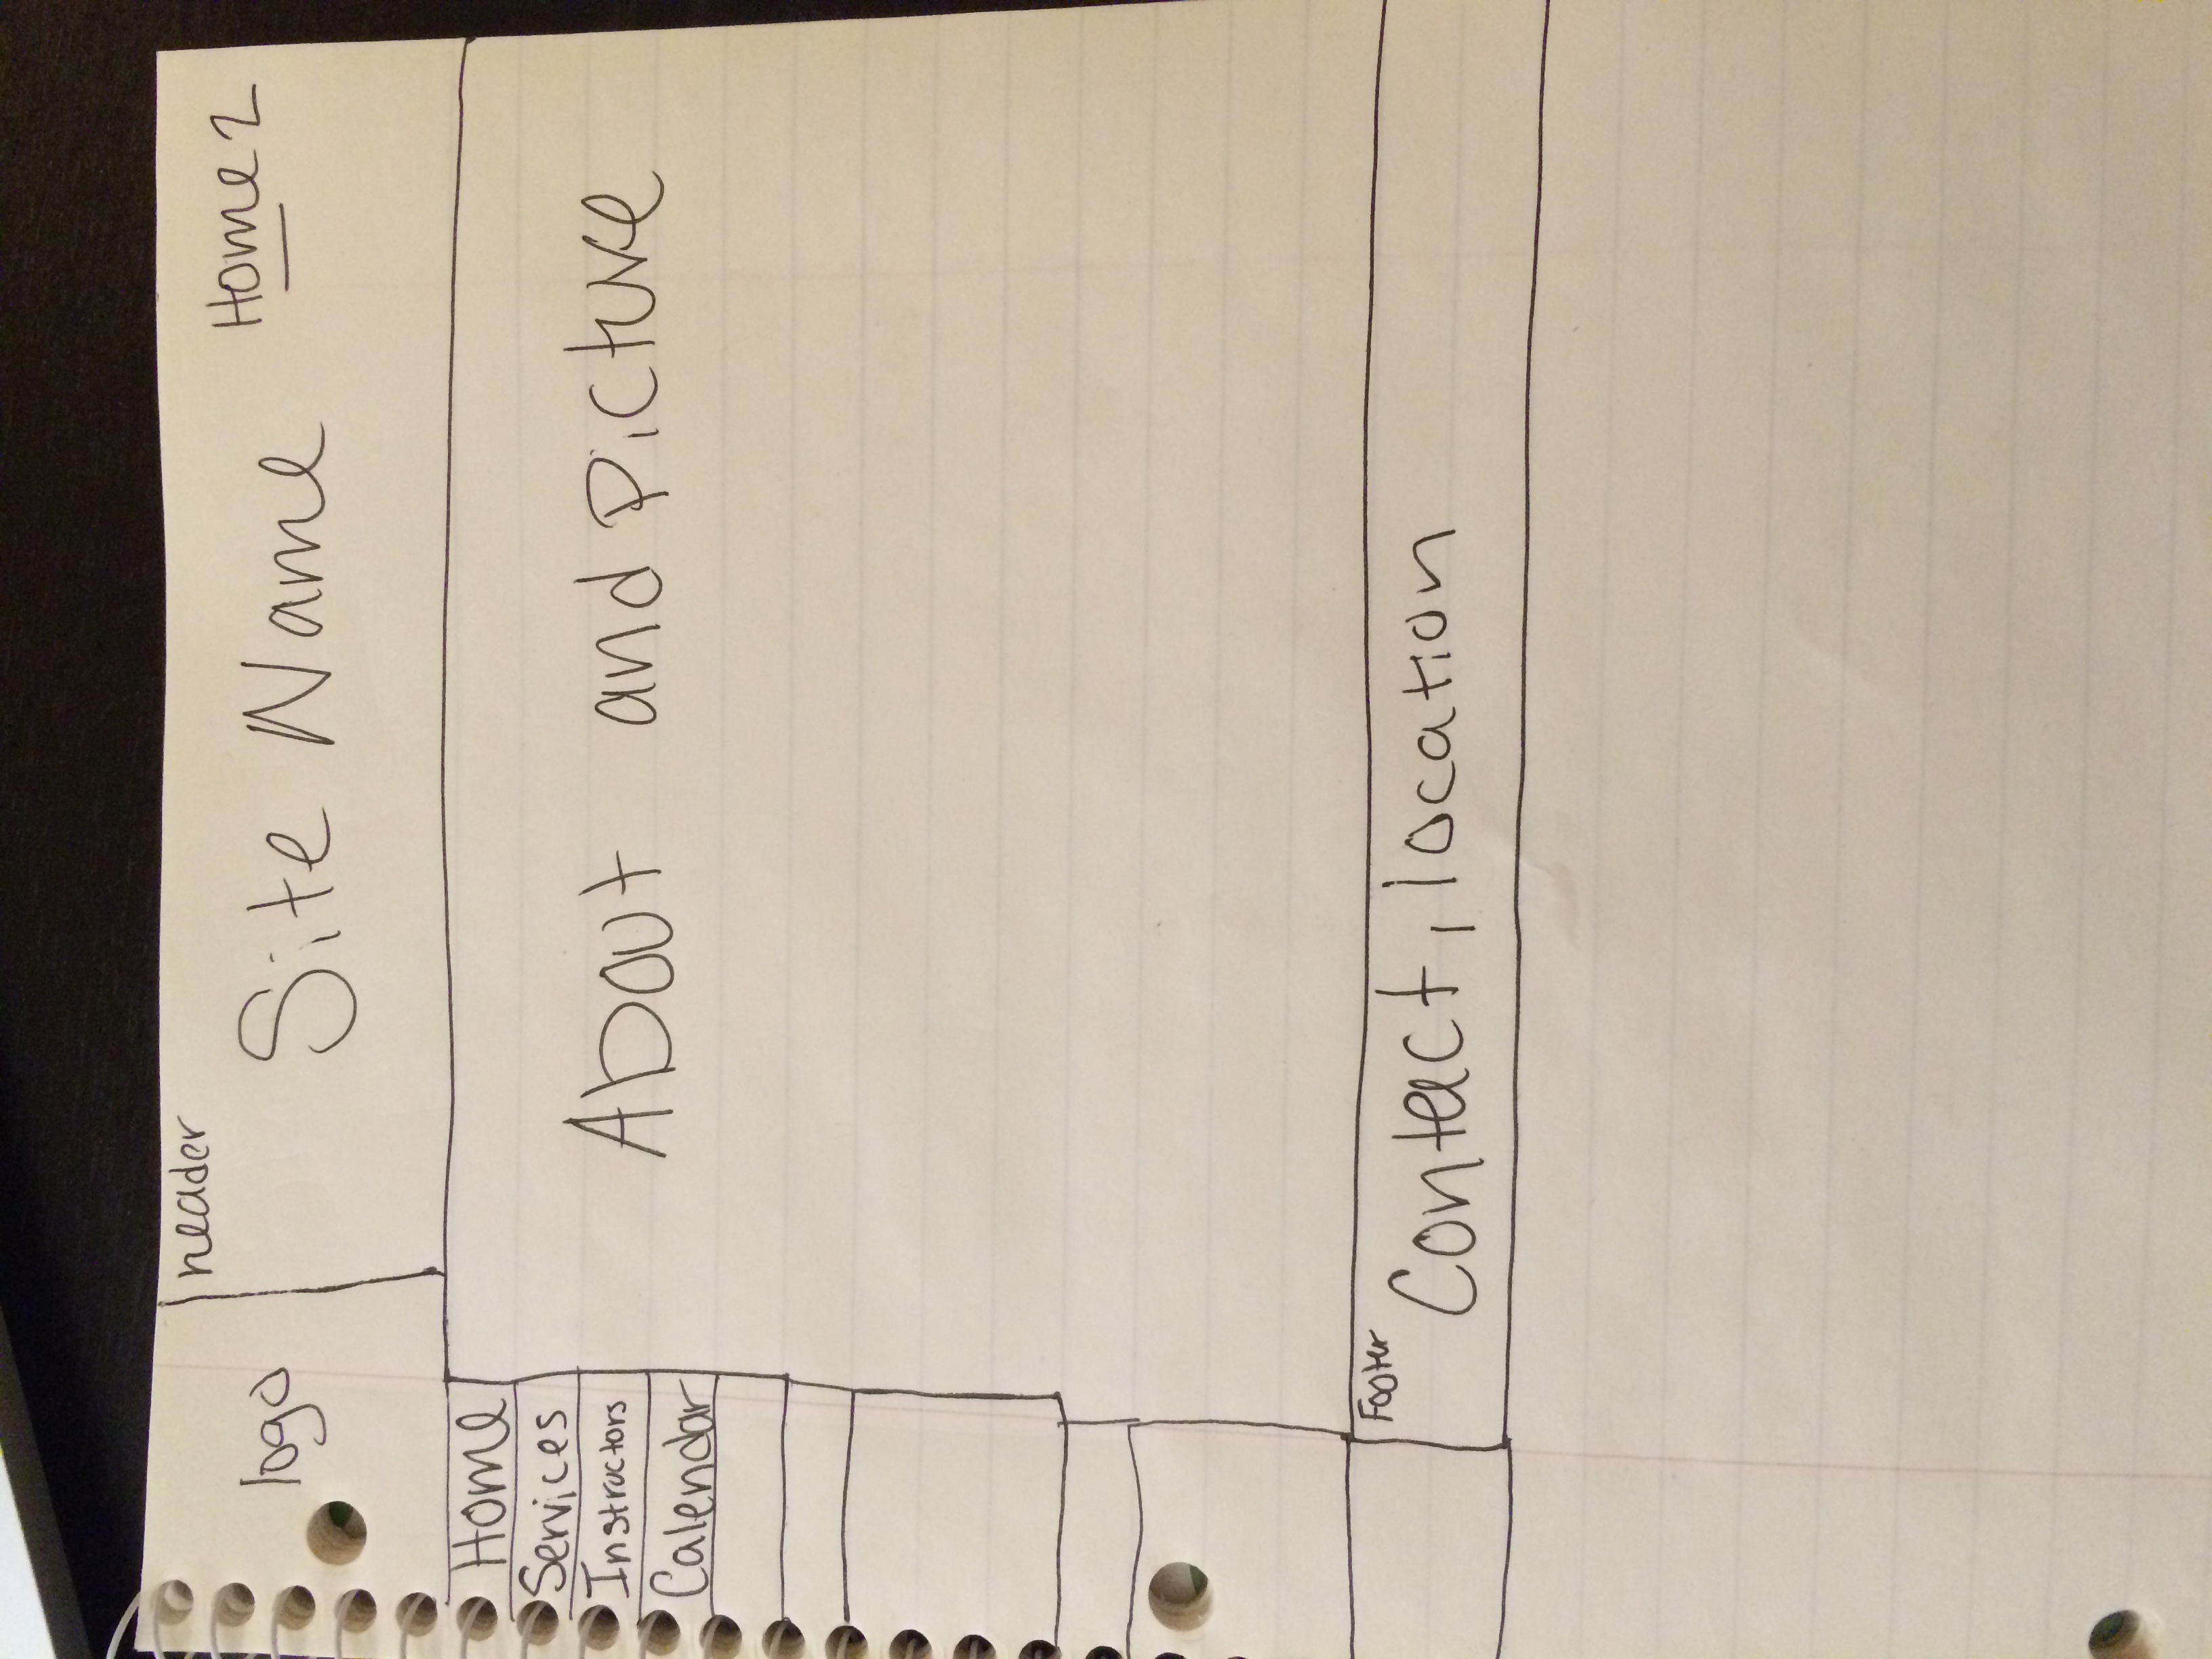 header
Home 2
logo
Site Name
Home
Services
Instructors
Calendar
About and Picture
Footer
Contact, location